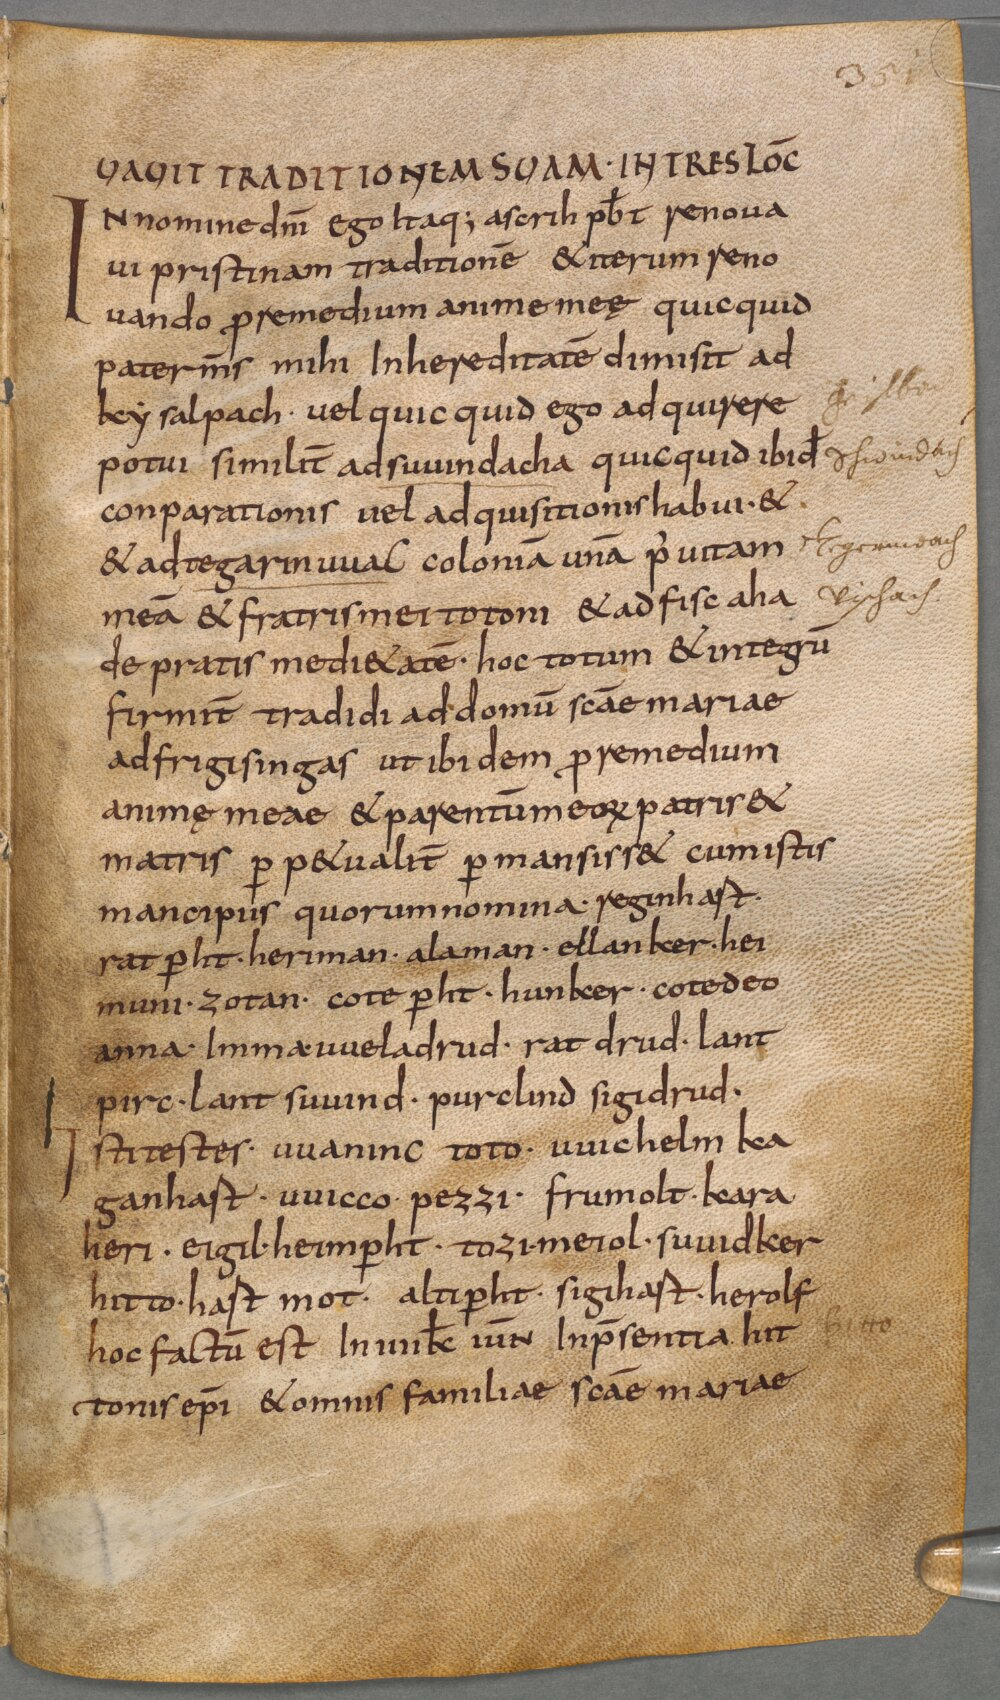 351
UAUIT TRADITIONEM SUAM · IN TRES LOC̄
IN nomine dn̄i ego Itaq; ascrih pb̄t renoua
ui pristinam traditionē & iterum reno
uando ꝓ remedium anime meę quicquid
pater m̄s mihi In hereditatē dimisit ad
keysalpach · uel quicquid ego adquirere
potui similit̄ ad suuindacha quicquid ibid̄
Schwindach
conparationis uel adquisitionis habui · &
& ad tegarinuuac coloniā unā p̄ uitam
meā & fratris mei totoni & ad fiscaha
Vischach
de pratis medi&atē · hoc totum & integrū
firmit̄ tradidi ad domū sc̄ae mariae
ad frigisingas ut ibidem ꝓ remedium
animę meae & parentū meoꝝ patris &
matris ꝑp&ualit̄ ꝑmansiss& cum istis
mancipiis quorum nomina · reginhast ·
ratꝑht · heriman · alaman · ellanker · hei
muni · zotan · coteꝑht · hunker · cotedeo
anna · Imma · uueladrud · ratdrud · lant
pirc · lantsuuind · purclind sigidrud ·
Isti testes · uuaninc toto · uuichelm ka
ganhast · uuicco · pezzi · frumolt · kara
heri · eigil · heimꝑht · tozi · meiol · suuidker
hitto · hastmot · altiꝑht · sigihast · herolf
hoc factū est In uuik̄c iūn Inp̄sentia hit
hitto
tonis ep̄i & omnis familiae sc̄ae mariae